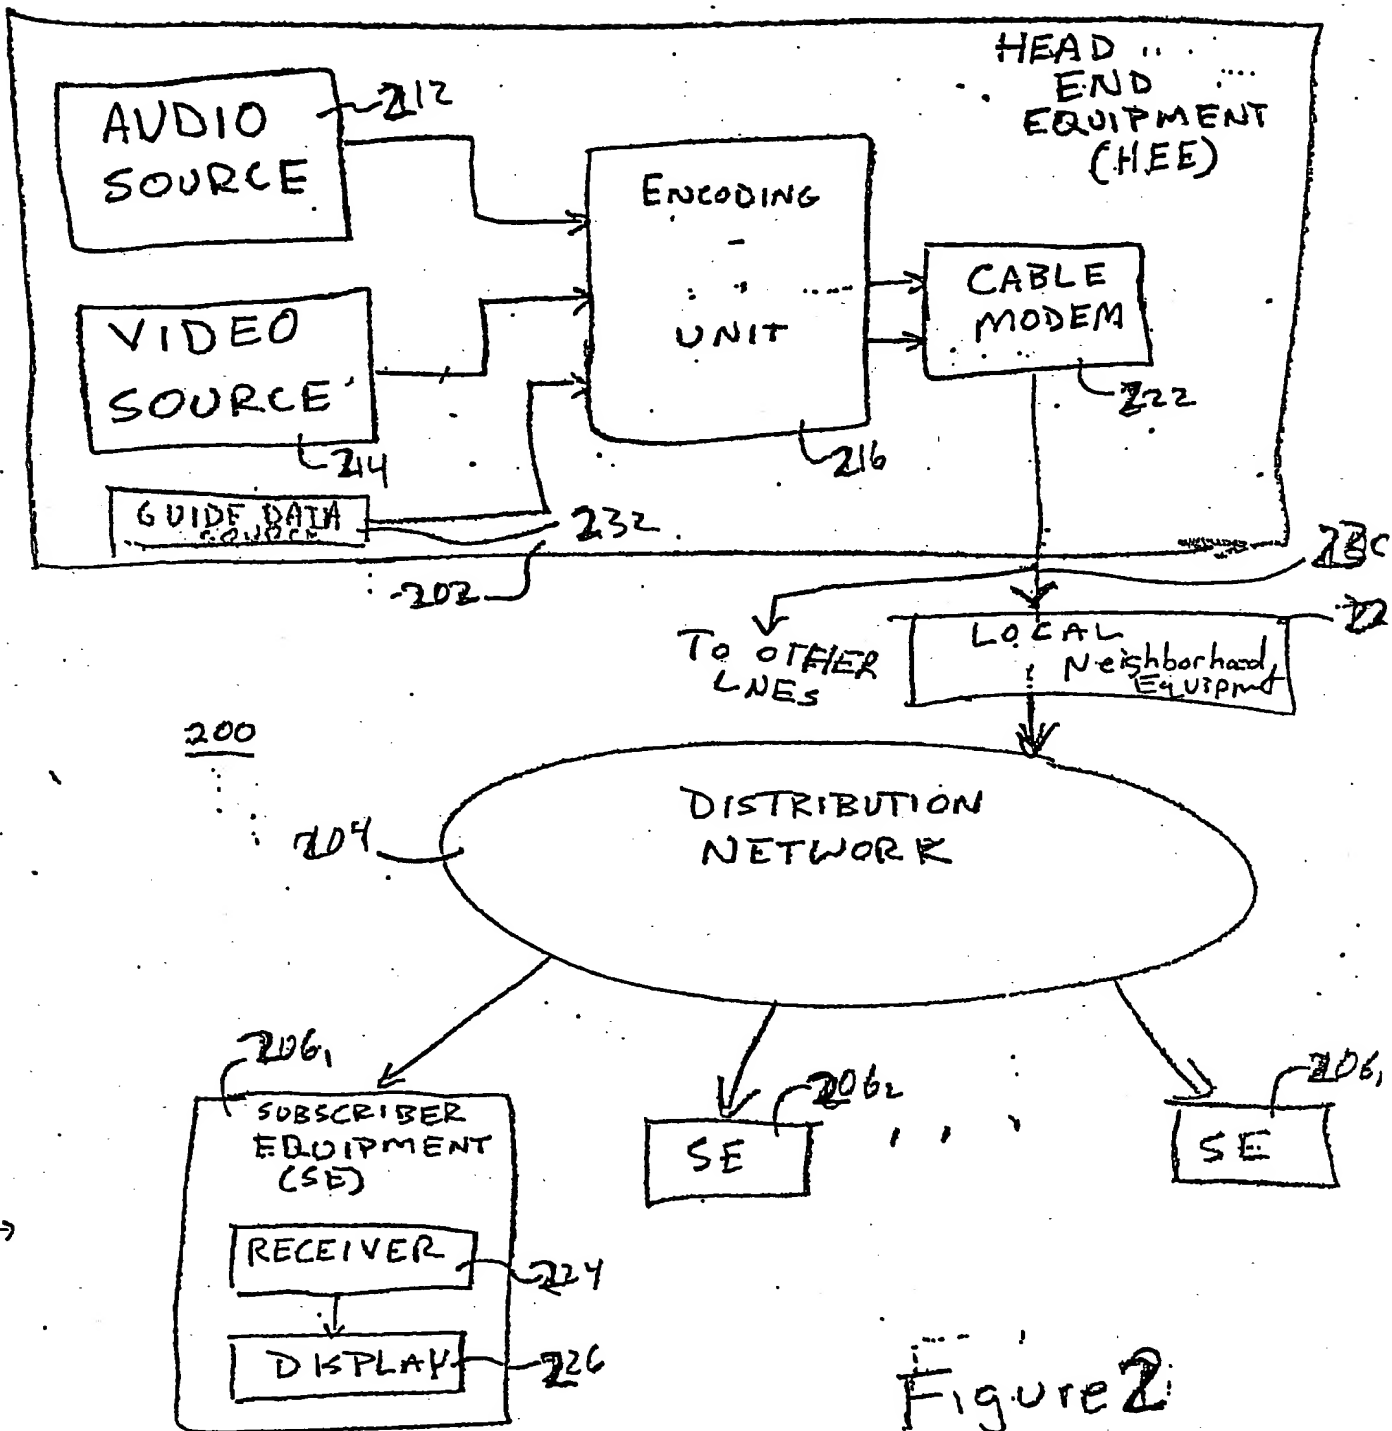 HEAD
END
EQUIPMENT
(HEE)
AUDIO
SOURCE
212
ENCODING
UNIT
216
CABLE
MODEM
222
VIDEO
SOURCE
214
GUIDE DATA
SOURCE
232
202
TO OTHER
LNEs
LOCAL
Neighborhood
Equipment
200
204
DISTRIBUTION
NETWORK
206₁
SUBSCRIBER
EQUIPMENT
(SE)
RECEIVER
224
DISPLAY
226
206₂
SE
, , ,
206₁
SE
Figure 2